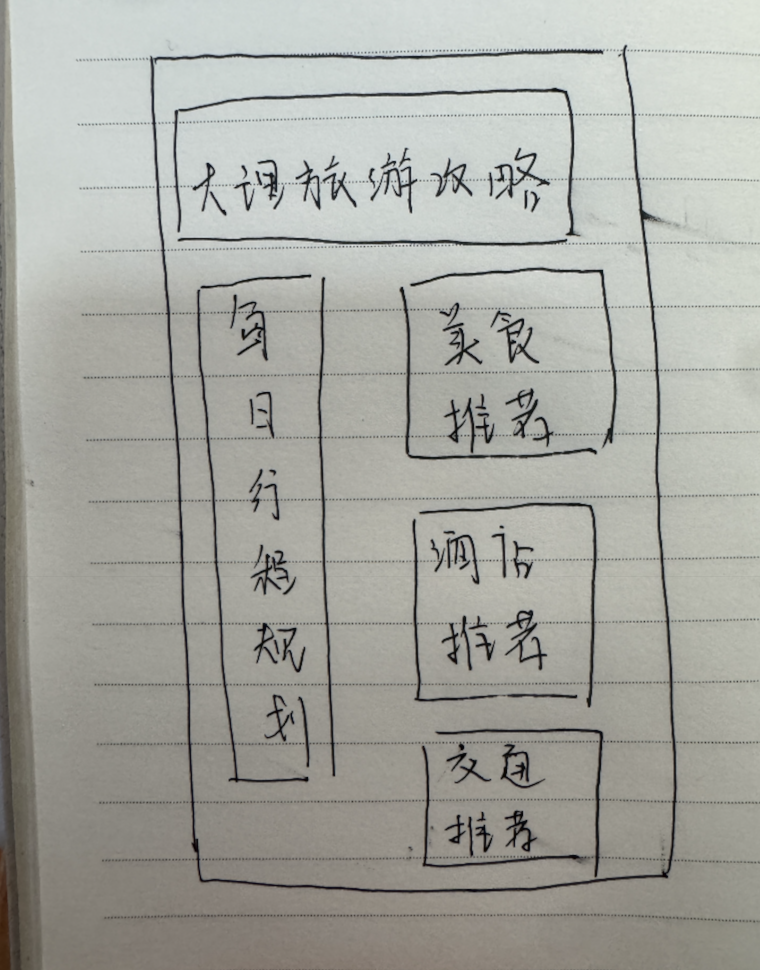 大理旅游攻略
每日行程规划
美食
推荐
酒店
推荐
交通
推荐